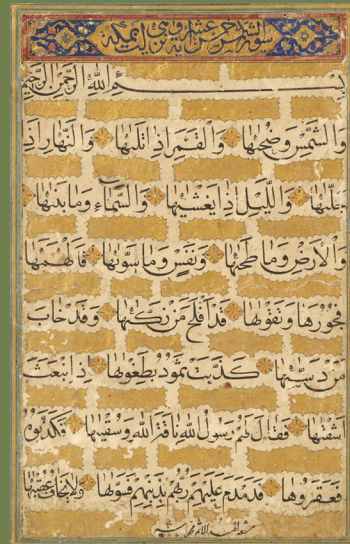 سورة الشمس خمس عشر آية وهي مكية
بسم الله الرحمن الرحيم
والشمس وضحيها والقمر اذا تليها والنهار اذا
جليها والليل اذا يغشيها والسماء وما بنيها
والارض وما طحيها ونفس وما سويها فالهمها
فجورها وتقويها قد افلح من زكيها وقد خاب
من دسيها كذبت ثمود بطغويها اذ انبعث
اشقيها فقال لهم رسول الله ناقة الله وسقيها فكذبوه
فعقروها فدمدم عليهم ربهم بذنبهم فسويها ولا يخاف عقبيها